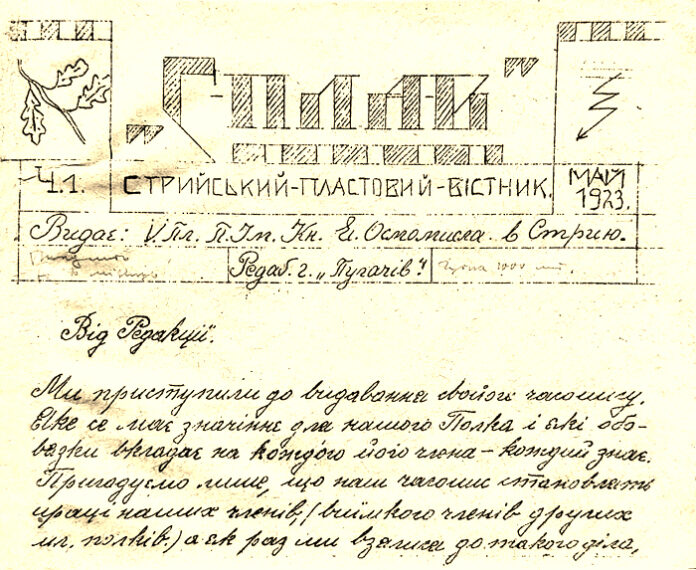 „СПЛАВ"
Ч.1.
СТРИЙСЬКИЙ-ПЛАСТОВИЙ-ВІСТНИК.
МАЙ
1923.
Видає: V. Пл. П. Ім. Кн. Я. Осмомисла в Стрию.
Редаг. г. „Пугачів".
Від Редакції.
Ми приступили до видавання свойого часопису.
Яке се має значіннє для нашого Полка і які обо-
вязки вкладає на кождого його члена – кождий знає.
Пригадуємо лише, що наш часопис становлять
праці наших членів, (виїмково членів других
пл. полків.) а як раз ми взялися до такого діла,